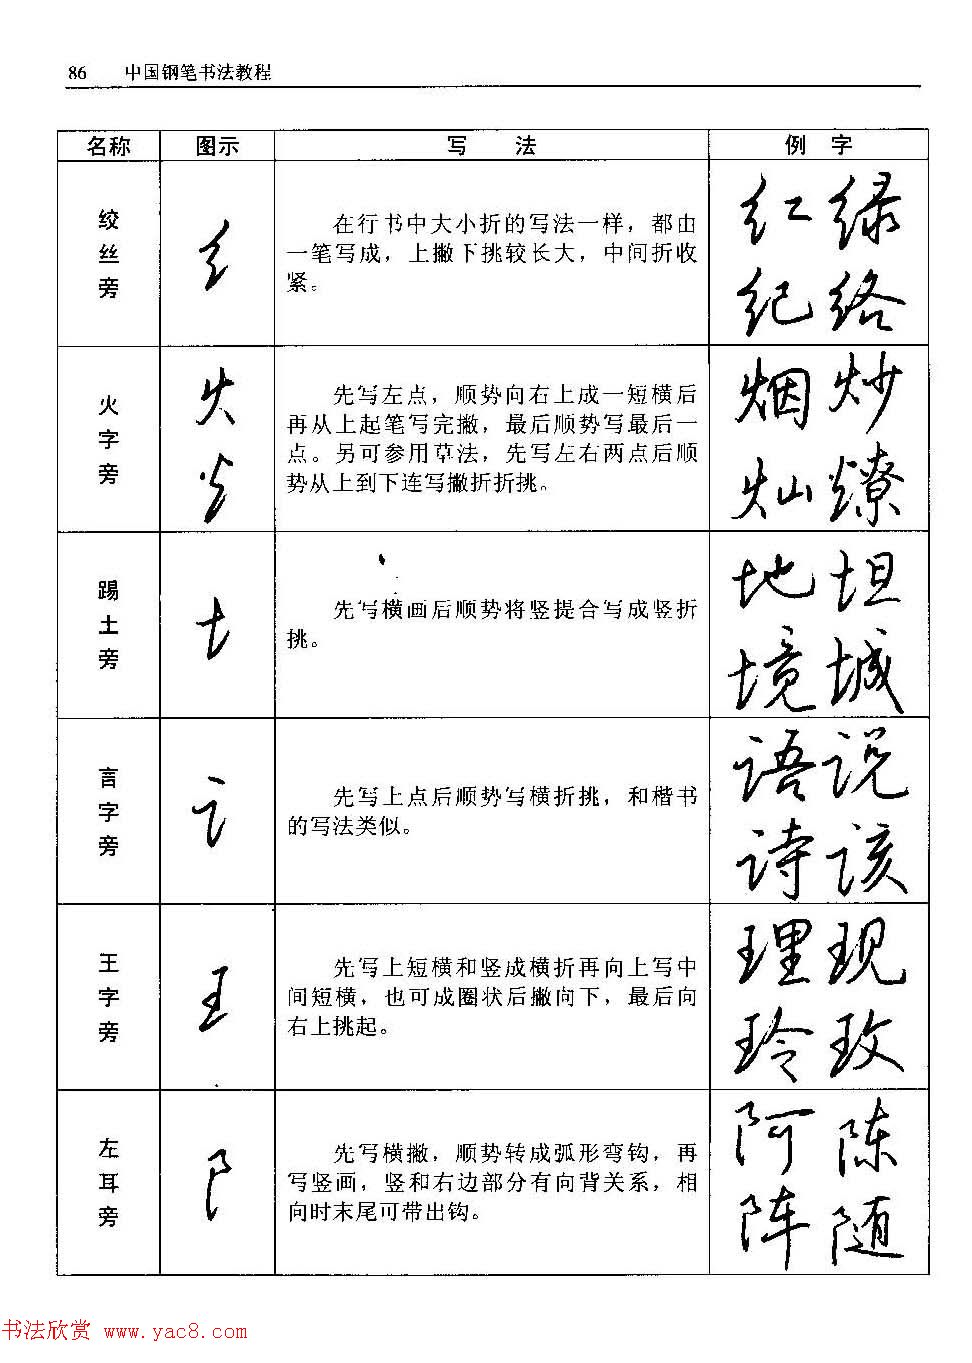 86 中国钢笔书法教程
名称 图示 写 法 例 字
绞丝旁
纟
在行书中大小折的写法一样，都由
一笔写成，上撇下挑较长大，中间折收
紧。
红 绿
纪 络
火字旁
火
先写左点，顺势向右上成一短横后
再从上起笔写完撇，最后顺势写最后一
点。另可参用草法，先写左右两点后顺
势从上到下连写撇折折挑。
烟 炒
灿 燎
踢土旁
先写横画后顺势将竖提合写成竖折
挑。
地 坦
境 城
言字旁
讠
先写上点后顺势写横折挑，和楷书
的写法类似。
语 说
诗 该
王字旁
王
先写上短横和竖成横折再向上写中
间短横，也可成圈状后撇向下，最后向
右上挑起。
理 现
玲 玫
左耳旁
阝
先写横撇，顺势转成弧形弯钩，再
写竖画，竖和右边部分有向背关系，相
向时末尾可带出钩。
阿 陈
阵 随
书法欣赏 www.yac8.com